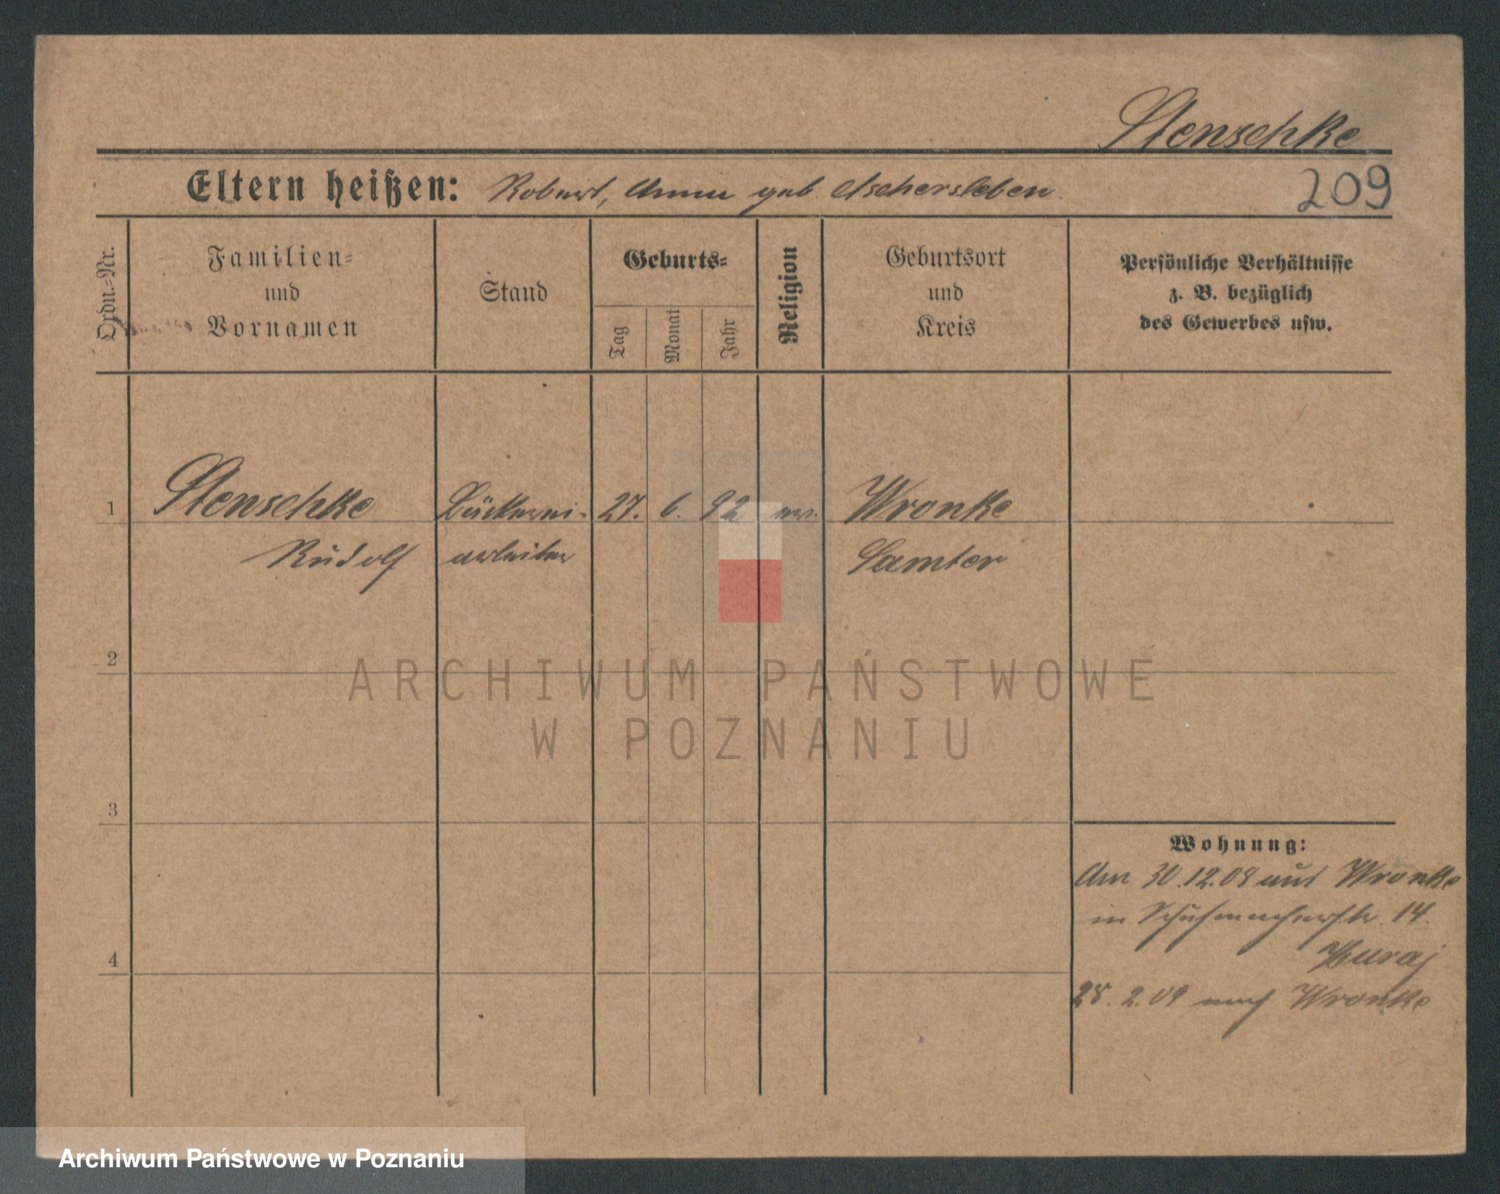 Stenschke
Eltern heißen: Robert, Anna geb Aschersleben.
209
Ordn.-Nr.
Familien-
und
Vornamen
Stand
Geburts-
Tag
Monat
Jahr
Religion
Geburtsort
und
Kreis
Persönliche Verhältnisse
z. B. bezüglich
des Gewerbes usw.
1
Stenschke
Rudolf
27. 6. 92 ev.
Wronke
Samter
arbeiter
2
3
4
ARCHIWUM PAŃSTWOWE
W POZNANIU
Wohnung:
Am 30.12.08 aus Wronke
in Schuhmacherstr. 14.
28. 2. 09 nach Wronke
Archiwum Państwowe w Poznaniu